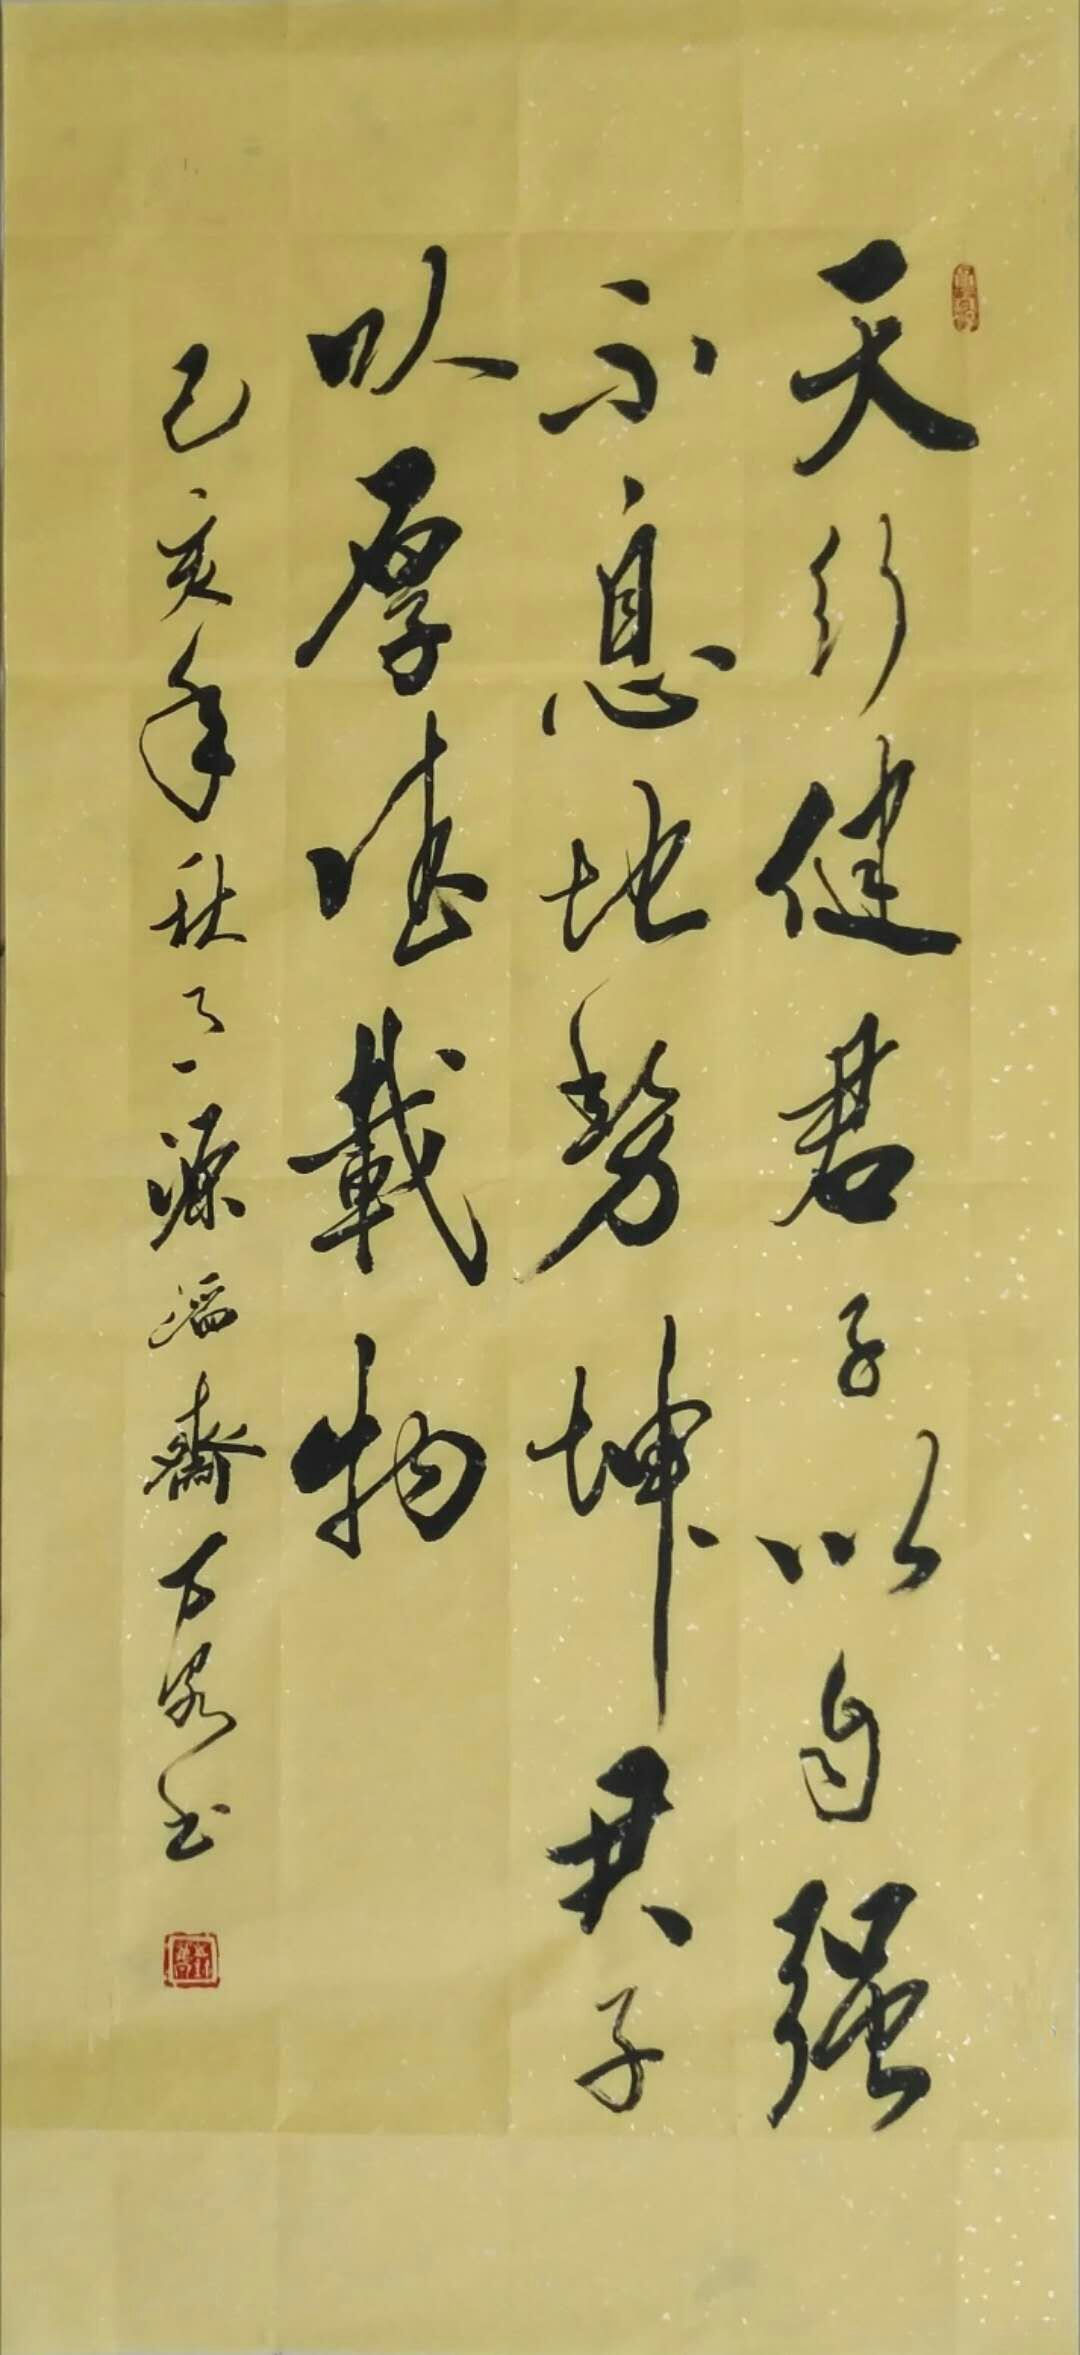 天行健君子以自强
不息地势坤君子
以厚德載物
己亥年秋月源滔齋万泉书